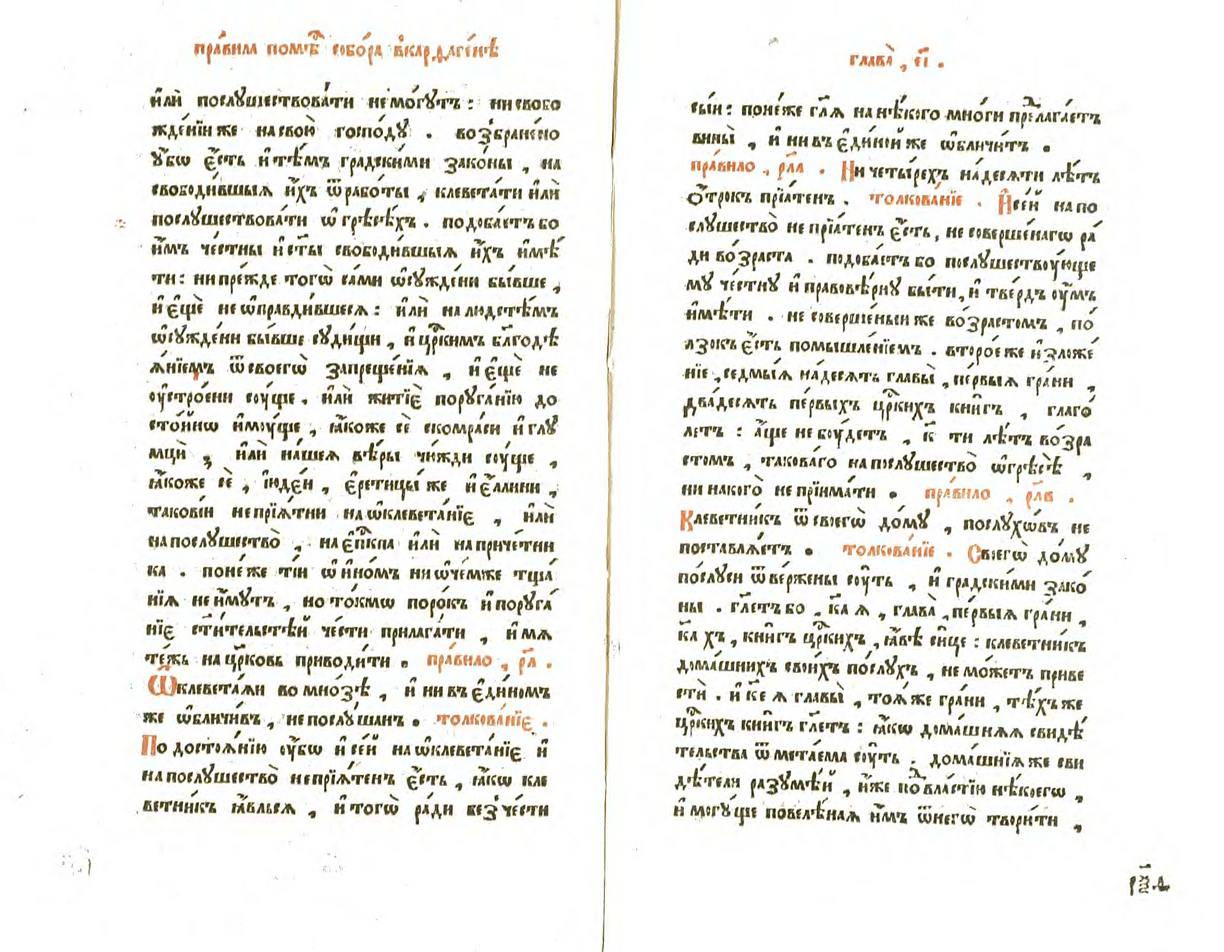 пра́вила помѣ́ⷭ собо́ра в̾карѳаге́нѣ
и҆лѝ послꙋшествова́ти не мо́гꙋтъ : ни свобо
жде́нїи же на свою̀ госпо́дꙋ . воз̾бране́но
ᲂу҆́бѡ є҆́сть и҆ тѣ́мъ гра́дскими зако́ны , на
свободи́вшыѧ и҆́хъ ѿ рабо́ты , клевета́ти и҆лѝ
послꙋшествова́ти ѡ҆ грѣсѣ́хъ . подоба́етъ бо
и҆̀мъ че́стны и҆ ст҃ы свободи́вшыѧ и҆́хъ и҆мѣ́
ти : ни пре́жде тогѡ̀ са́ми ѡ҆сꙋжде́ни бы́вше ,
и҆ є҆щѐ не ѡ҆правди́вшесѧ : и҆лѝ на лю́дстѣмъ
ѡ҆сꙋжде́ни бы́вше сꙋди́щи , и҆ цр҃ким̾ъ бл҃годѣ
ѧ́нїемъ ѿ своегѡ̀ запреще́нїѧ , и҆ є҆щѐ не
ᲂу҆стро́ени сꙋ́ще . и҆лѝ житїѐ порꙋга́нїю до
сто́йно и҆мꙋ́ще , ꙗ҆́коже сѐ скомра́си и҆ глꙋ
мцы̀ ; и҆лѝ на́шеѧ вѣ́ры чю́жди сꙋ́ще ,
ꙗ҆́коже сѐ , і҆ю́дѣи , є҆ретицы́ же и҆ є҆́ллини ,
таковї́и непрїѧ́тни на ѡ҆клевета́нїе , и҆лѝ
на послꙋ́шество , на є҆пⷭ҇кпа и҆лѝ на при́четни
ка . поне́же ті́и ѡ҆ и҆́номъ ни ѡ҆ че́мже тща́
нїѧ не и҆́мꙋтъ , но то́кмѡ поро́къ и҆ порꙋга́
нїе ст҃и́тельстѣй че́сти прилага́ти , и҆ мѧ
те́жь на цр҃ковь приводи́ти . пра́вило , рл҃ .
Ѡ҆клевета́ѧи во мно́зѣ , и҆ ни въ є҆ди́номъ
же ѡ҆бличи́в̾ , не послꙋ́шан̾ . толкова́нїе .
По достоѧ́нїю ᲂу҆́бѡ и҆ се́й на ѡ҆клевета́нїе и҆
на послꙋ́шество непрїѧ́тенъ є҆́сть , ꙗ҆́кѡ кле
ветни́къ ꙗ҆ви́льсѧ , и҆ тогѡ̀ ра́ди без̾че́сти
глава̀ , є҃і .
сы́и : поне́же гл҃ѧ на нѣ́кого мно́ги пре́лага́етъ
вины̀ , и҆ ни въ є҆ди́нои же ѡ҆бличи́тъ .
пра́вило , рл҃а . Ни четы́рехъ на́десѧти лѣ́тъ
ѻ҆́трокъ прїѧ́тен̾ . толкова́нїе . И҆ се́й на по
слꙋ́шество не прїѧ́тен̾ є҆́сть , не соверше́нагѡ ра́
ди во́зраста . подоба́етъ бо послꙋшествꙋ́юще
мꙋ че́стнꙋ и҆ правовѣ́рнꙋ бы́ти , и҆ тве́рдъ ᲂу҆́мъ
и҆мѣ́ти . не соверше́ныи же во́зрастомъ , по́
лзокъ є҆́сть помышле́нїемъ . второ́е же и҆зложе́
нїе , седмыѧ на́десѧть главы̀ , пе́рвыѧ гра́ни ,
два́десѧть пе́рвыхъ цр҃кихъ кни́гъ , глаго́
летъ : а҆́ще не бꙋ́детъ , к҃ ти лѣ́тъ во́зра
стомъ , такова́го на послꙋ́шество ѡ҆ грѣсѣ̀ ,
ни на кого̀ не прїима́ти . пра́вило , рл҃в .
Клеветни́къ ѿ своегѡ̀ до́мꙋ , послꙋ́хѡвъ не
поставлѧ́етъ . толкова́нїе . Своегѡ̀ до́мꙋ
по́слꙋси ѿве́ржены сꙋ́ть , и҆ гра́дскими зако́
ны . гл҃етъ бо , к҃а ѧ , глава̀ , пе́рвыѧ гра́ни ,
к҃а хъ , кни́гъ цр҃кихъ , ꙗ҆́вѣ си́це : клеветни́къ
дома́шнихъ свои́хъ послꙋ́хъ , не мо́жетъ приве
стѝ . и҆ к҃е ѧ главы̀ , тоѧ́же гра́ни , тѣ́хъже
цр҃кихъ кни́гъ гл҃етъ : ꙗ҆́кѡ дома́шнѧѧ свидѣ́
тельства ѿме́таема сꙋ́ть . дома́шнїѧ же сви
дѣ́тели разꙋмѣ́й , и҆́же поⷣ вла́стїю нѣ́коегѡ ,
и҆ могꙋ́ще повелѣ́наѧ и҆́мъ ѿ него̀ твори́ти ,